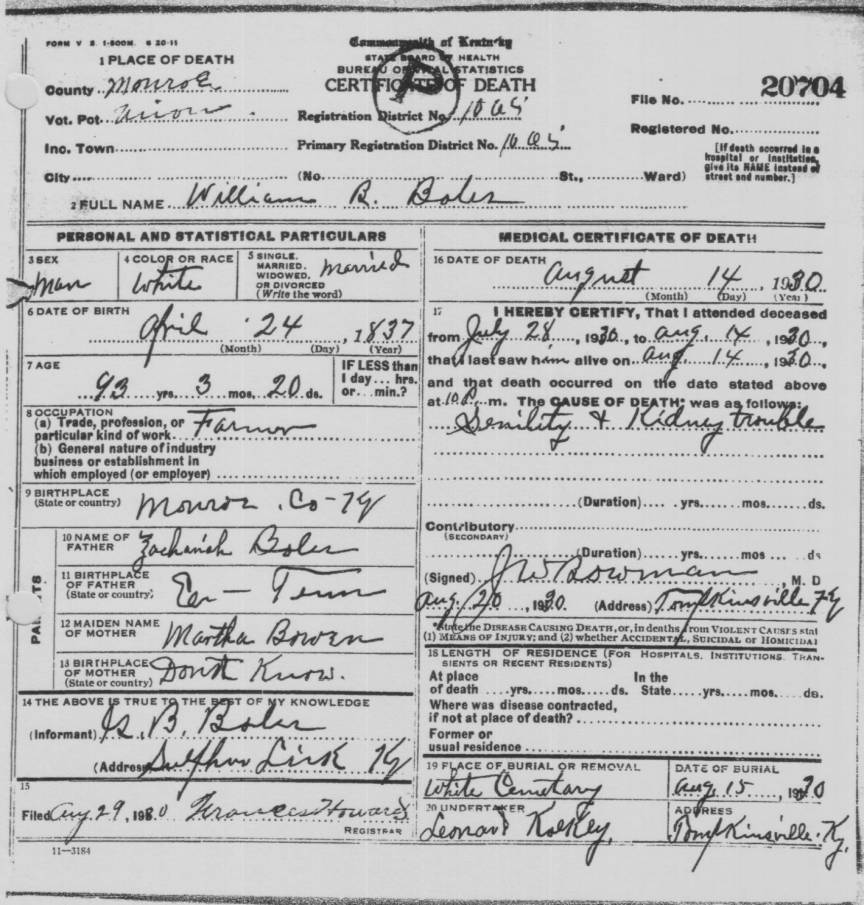 FORM V S. 1-500M. 6 20-11
Commonwealth of Kentucky
STATE BOARD OF HEALTH
BUREAU OF VITAL STATISTICS
CERTIFICATE OF DEATH
20704
File No.
Registered No.
[If death occurred in a hospital or institution, give its NAME instead of street and number.]
1 PLACE OF DEATH
County Monroe
Vot. Pct. Union
Inc. Town
City
Registration District No.
Primary Registration District No.
(No. St., Ward)
2 FULL NAME William B. Boles
PERSONAL AND STATISTICAL PARTICULARS
3 SEX
Man
4 COLOR OR RACE
White
5 SINGLE, MARRIED, WIDOWED, OR DIVORCED (Write the word)
Married
6 DATE OF BIRTH
April 24, 1837
(Month) (Day) (Year)
7 AGE
93 yrs. 3 mos. 20 ds.
IF LESS than 1 day... hrs. or... min.?
8 OCCUPATION
(a) Trade, profession, or
particular kind of work Farmer
(b) General nature of industry
business or establishment in
which employed (or employer)
9 BIRTHPLACE
(State or country) Monroe Co-Ky
PARENTS.
10 NAME OF FATHER Zachariah Boles
11 BIRTHPLACE OF FATHER (State or country) Tenn
12 MAIDEN NAME OF MOTHER Martha Bowen
13 BIRTHPLACE OF MOTHER (State or country) Dont Know.
14 THE ABOVE IS TRUE TO THE BEST OF MY KNOWLEDGE
(Informant) B. Boles
(Address) Sulphur Lick Ky
15
Filed Aug 29, 1930 Frances Howard
REGISTRAR
11-3184
MEDICAL CERTIFICATE OF DEATH
16 DATE OF DEATH
August 14, 1930
(Month) (Day) (Year)
17 I HEREBY CERTIFY, That I attended deceased
from July 28, 1930, to Aug. 14, 1930,
that I last saw him alive on Aug 14, 1930,
and that death occurred on the date stated above
at 10 P. m. The CAUSE OF DEATH* was as follows:
Senility & Kidney trouble
(Duration) yrs. mos. ds.
Contributory
(SECONDARY)
(Duration) yrs. mos. ds
(Signed) J W Bowman, M. D
Aug 20, 1930 (Address) Tompkinsville Ky
*State the DISEASE CAUSING DEATH, or, in deaths from VIOLENT CAUSES stat
(1) MEANS OF INJURY; and (2) whether ACCIDENTAL, SUICIDAL or HOMICIDAL
18 LENGTH OF RESIDENCE (FOR HOSPITALS, INSTITUTIONS, TRAN-
SIENTS OR RECENT RESIDENTS)
At place of death yrs. mos. ds. In the State yrs. mos. ds.
Where was disease contracted,
if not at place of death?
Former or
usual residence
19 PLACE OF BURIAL OR REMOVAL
White Cemetary
DATE OF BURIAL
Aug 15, 1930
20 UNDERTAKER
Leonard
ADDRESS
Tompkinsville Ky.